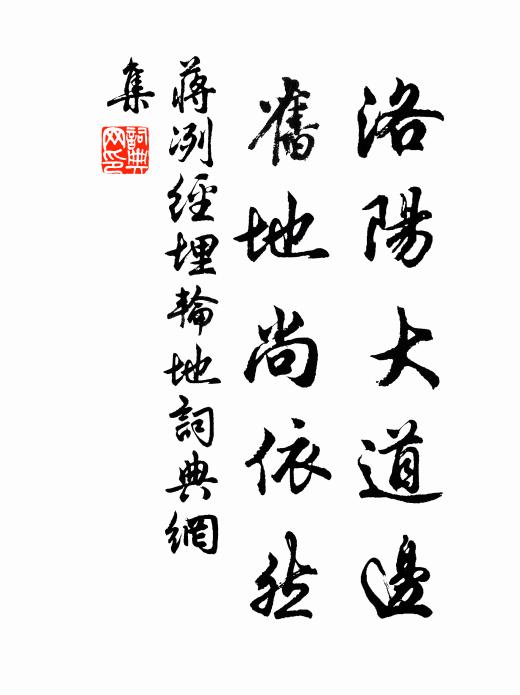 洛陽大道邊
舊地尚依然
蔣洌經埋輪地詞典網
集
詞典
网印